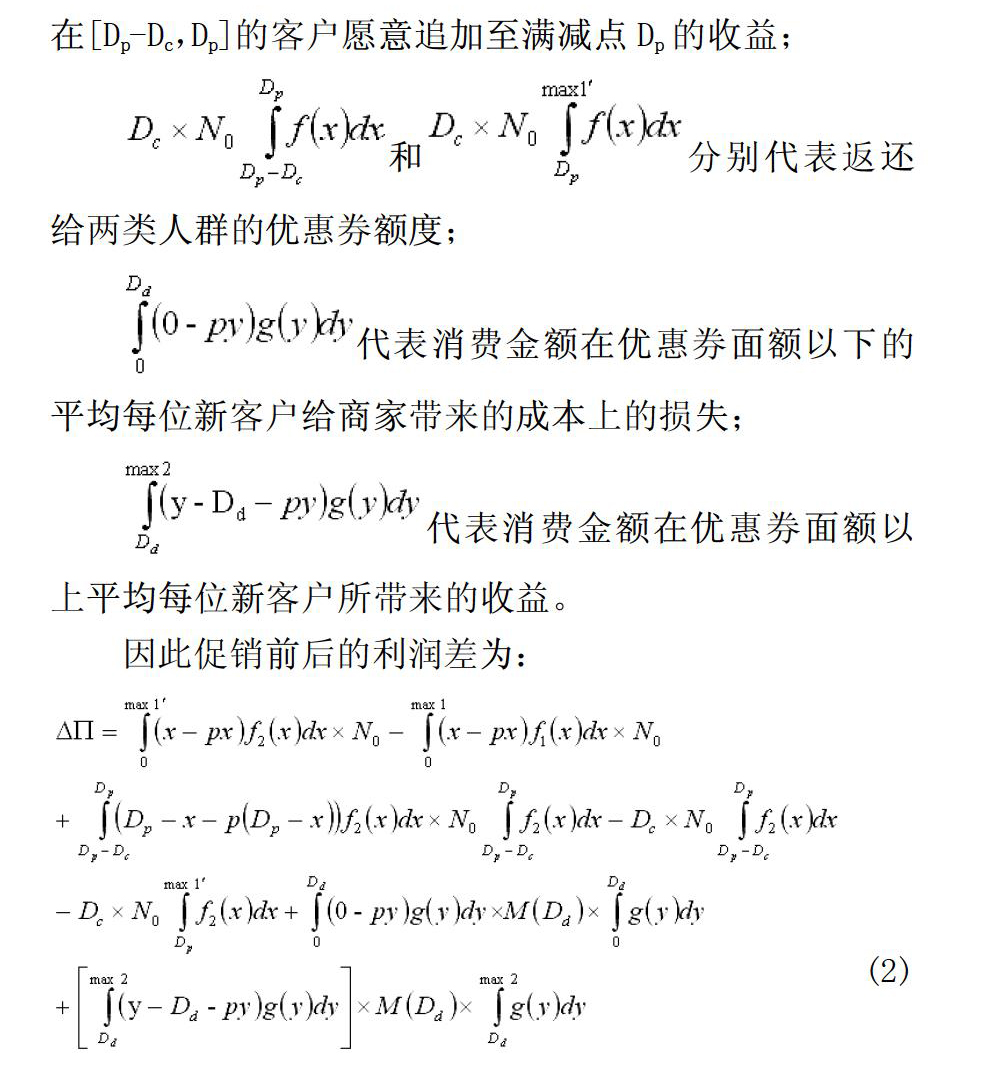 在[Dₚ-D_c,Dₚ]的客户愿意追加至满减点 Dₚ 的收益；
D_c × N₀ ∫_{D_p−D_c}^{D_p} f(x)dx 和 D_c × N₀ ∫_{D_p}^{max1′} f(x)dx 分别代表返还
给两类人群的优惠券额度；
∫_{0}^{D_d} (0 - py)g(y)dy 代表消费金额在优惠券面额以下的
平均每位新客户给商家带来的成本上的损失；
∫_{D_d}^{max 2} (y - D_d − py)g(y)dy 代表消费金额在优惠券面额以
上平均每位新客户所带来的收益。
因此促销前后的利润差为：
ΔΠ = ∫_{0}^{max 1′} (x − px)f₂(x)dx × N₀ − ∫_{0}^{max 1} (x − px)f₁(x)dx × N₀
+ ∫_{D_p−D_c}^{D_p} (D_p − x − p(D_p − x))f₂(x)dx × N₀ ∫_{D_p−D_c}^{D_p} f₂(x)dx − D_c × N₀ ∫_{D_p−D_c}^{D_p} f₂(x)dx
− D_c × N₀ ∫_{D_p}^{max 1′} f₂(x)dx + ∫_{0}^{D_d} (0 - py)g(y)dy ×M(D_d)× ∫_{0}^{D_d} g(y)dy
+ [∫_{D_d}^{max 2} (y − D_d - py)g(y)dy] × M(D_d)× ∫_{D_d}^{max 2} g(y)dy (2)